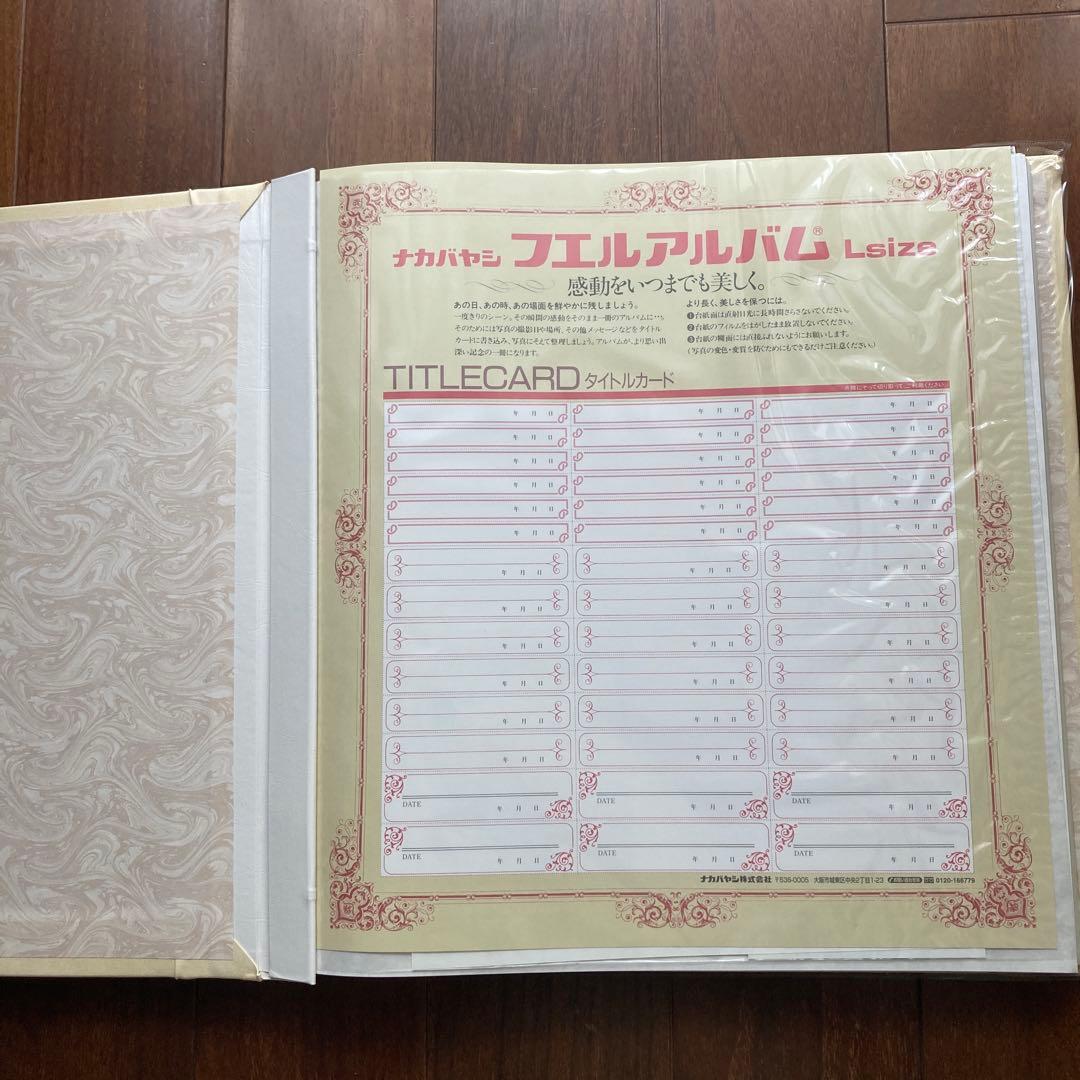 ナカバヤシ フエルアルバム® Lsize
感動をいつまでも美しく。
あの日、あの時、あの場面を鮮やかに残しましょう。
一度きりのシーン。その瞬間の感動をそのまま一冊のアルバムに…。
そのためには写真の撮影日や場所、その他メッセージなどをタイトル
カードに書き込み、写真にそえて整理しましょう。アルバムが、より思い出
深い記念の一冊になります。
より長く、美しさを保つには。
❶台紙面は直射日光に長時間さらさないでください。
❷台紙のフィルムをはがしたまま放置しないでください。
❸台紙の糊面には直接ふれないようにお願いします。
(写真の変色・変質を防ぐためにもできるだけご注意ください。)
TITLECARD タイトルカード
点線にそって切り取ってご利用ください
年 月 日 年 月 日 年 月 日
年 月 日 年 月 日 年 月 日
年 月 日 年 月 日 年 月 日
年 月 日 年 月 日 年 月 日
年 月 日 年 月 日 年 月 日
年 月 日 年 月 日 年 月 日
年 月 日 年 月 日 年 月 日
年 月 日 年 月 日 年 月 日
年 月 日 年 月 日 年 月 日
年 月 日 年 月 日 年 月 日
年 月 日 年 月 日 年 月 日
年 月 日 年 月 日 年 月 日
DATE 年 月 日 DATE 年 月 日 DATE 年 月 日
DATE 年 月 日 DATE 年 月 日 DATE 年 月 日
ナカバヤシ株式会社 〒536-0005 大阪市城東区中央2丁目1-23 0120-166779